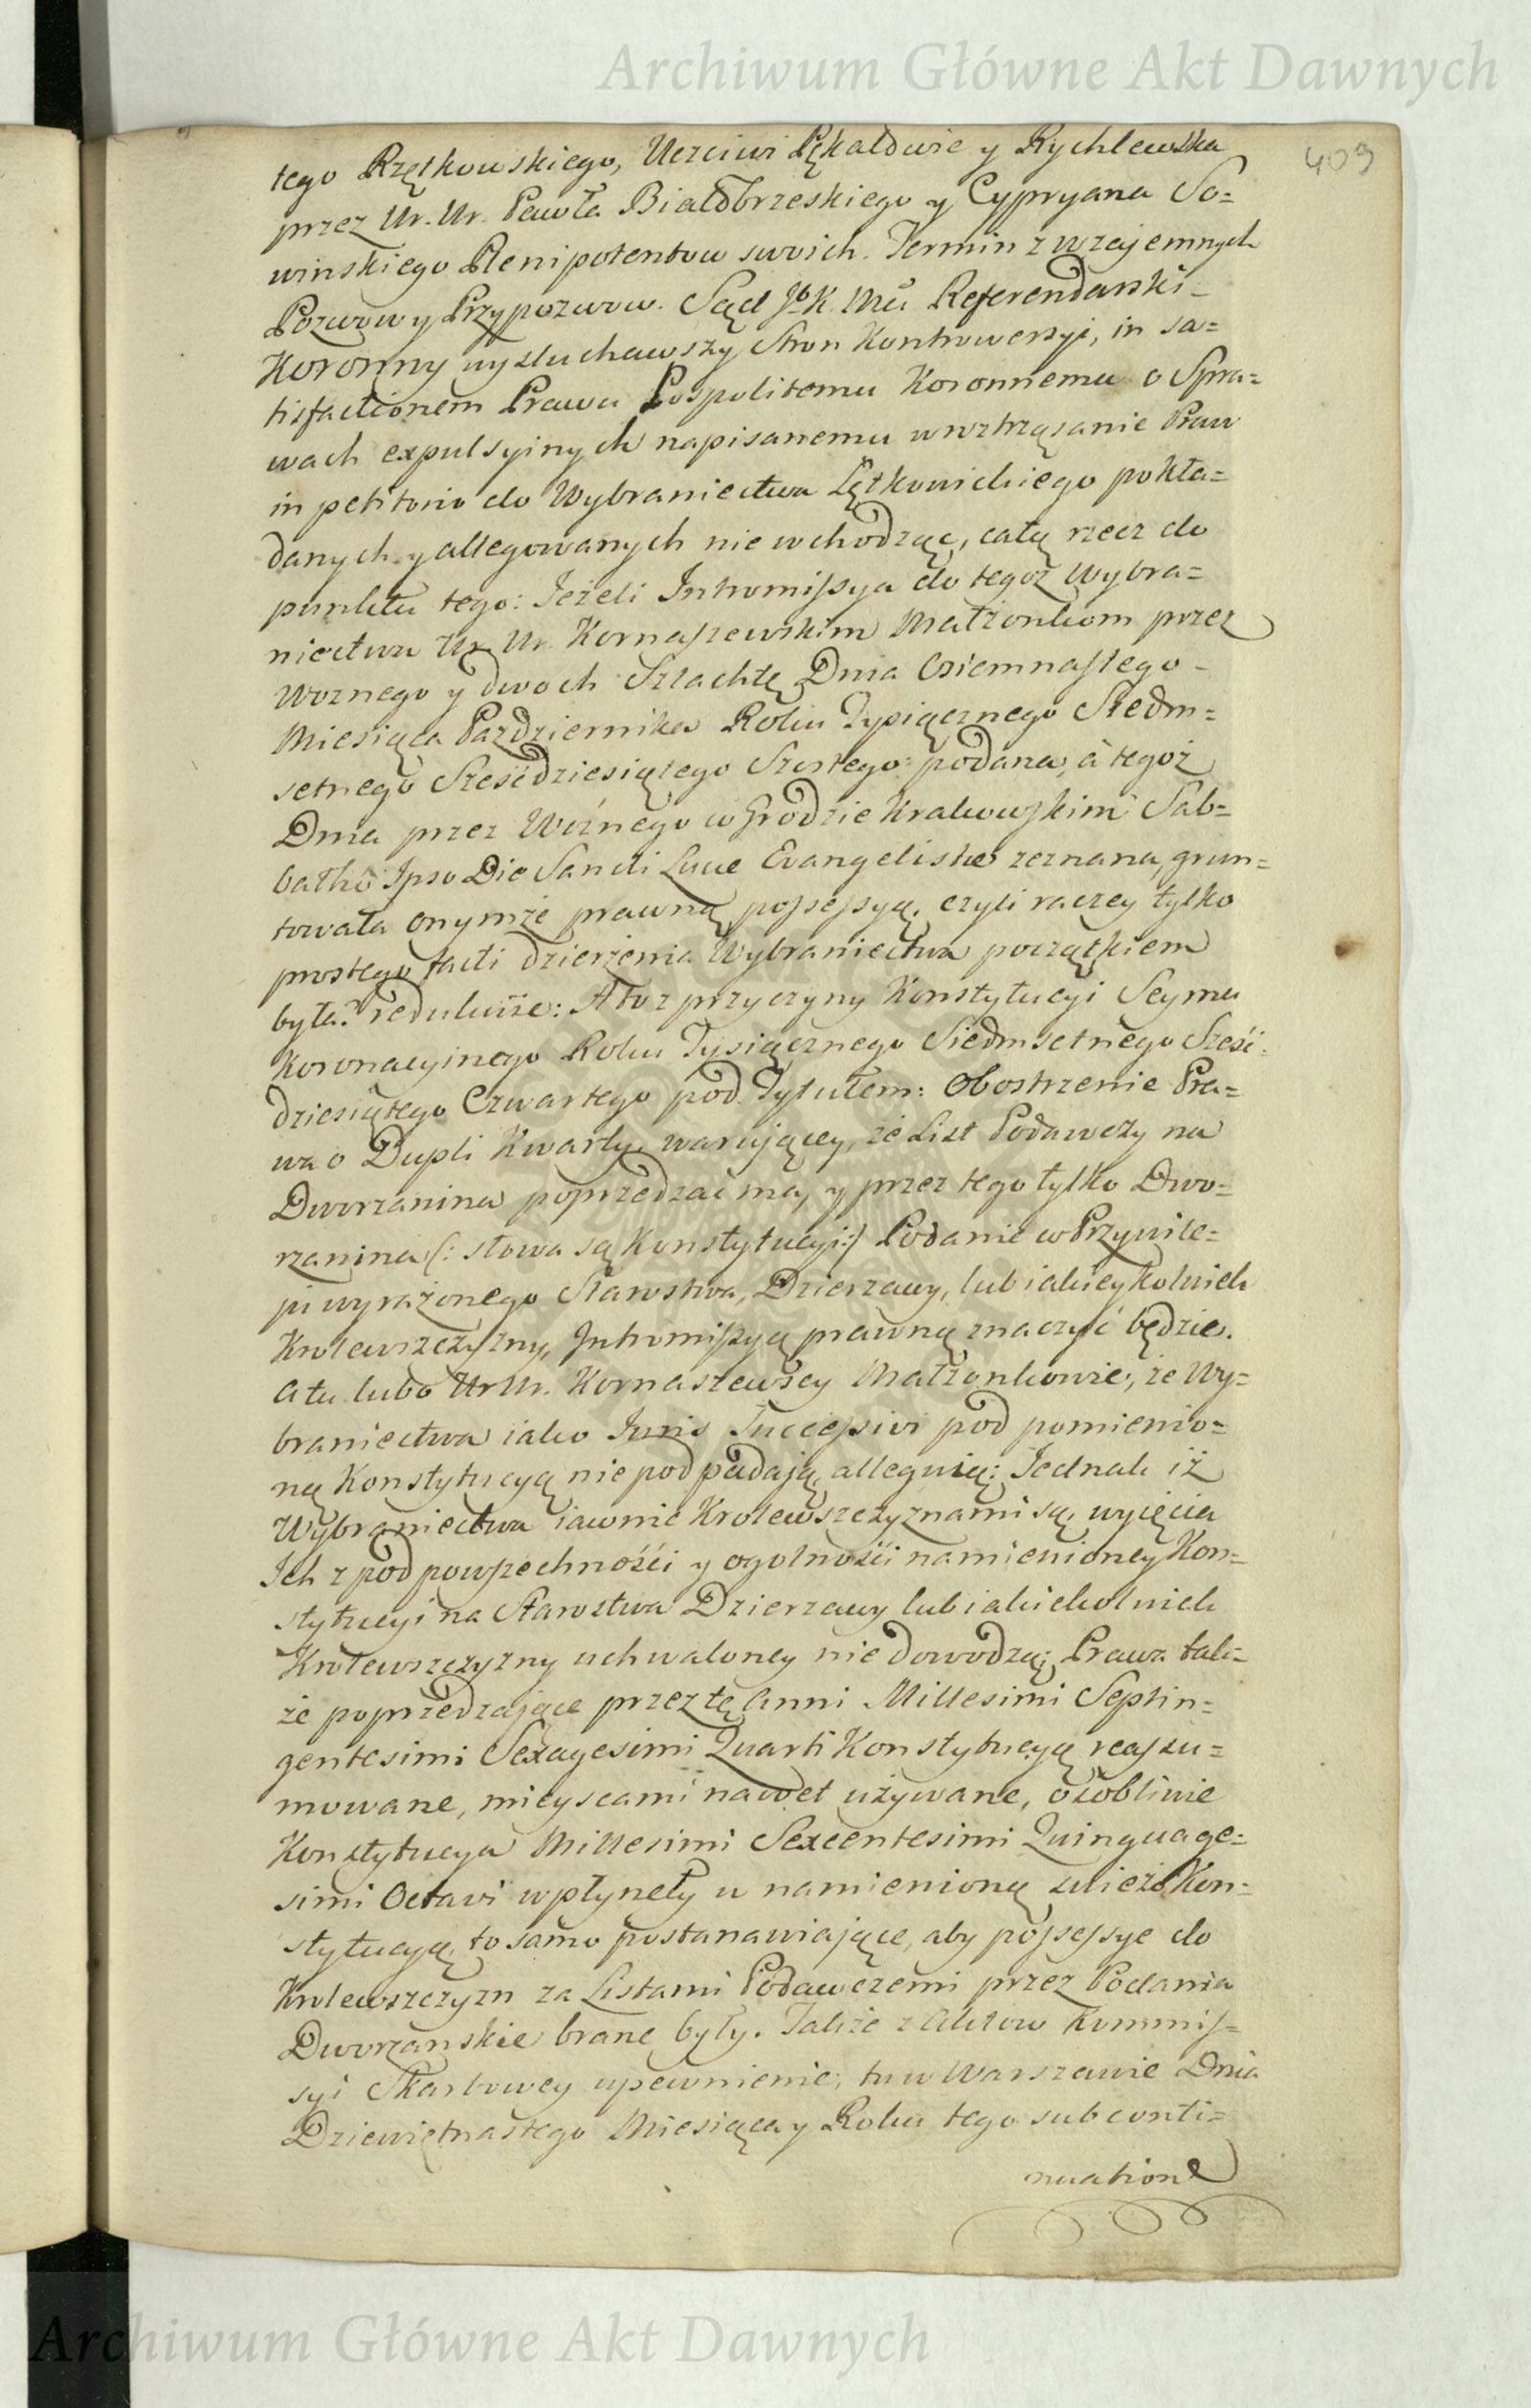 Archiwum Główne Akt Dawnych
403
tego Rzętkowskiego, Uczciwi Pękaldwie y Rychlewska
przez Ur. Ur. Pawła Białobrzeskiego y Cypryana So=
winskiego Plenipotentow swoich. Termin z wzajemnych
Pozwow y Przypozwow. Sąd J. K. Mci Referendarski
Koronny wysłuchawszy Stron Kontrowersyi, in sa=
tisfactionem Prawu Pospolitemu Koronnemu o Spra=
wach expulsyinych napisanemu w wztrząsanie Praw
in petitorio do Wybraniectwa Łętkowickiego pokła=
danych y allegowanych nie wchodząc, całą rzecz do
punktu tego: Jeżeli Intromissya do tegoż Wybra=
niectwa Ur. Ur. Kornaszewskim Małżonkom przez
Woznego y dwoch Szlachtę Dnia Osiemnastego
Miesiąca Pazdziernika Roku Tysiącznego Siedm=
setnego Sześćdziesiątego Szostego podana, à tegoż
Dnia przez Woźnego w Grodzie Krakowskim Sab=
batho Ipso Die Sancti Lucæ Evangelistæ zeznana, grun=
towała onymże prawną possessyą, czyli raczey tylko
prostego facti dzierżenia Wybraniectwa początkiem
była? redukuie: A to z przyczyny Konstytucyi Seymu
Koronacyinego Roku Tysiącznego Siedmsetnego Sześć=
dziesiątego Czwartego pod Tytułem: Obostrzenie Pra=
wa o Dupli Kwarty, waruiącey, że List Podawczy na
Dworzanina poprzedzać ma, y przez tego tylko Dwo=
rzanina (: słowa są Konstytucyi :) Podanie w Przywile=
ju wyrażonego Starostwa, Dzierzawy, lub iakieykolwiek
Krolewszczyzny, Intromissyą prawną znaczyć będzie.
A tu lubo Ur Ur. Kornaszewscy Małżonkowie, że Wy=
braniectwa iako Juris Successivi pod pomienio=
ną Konstytucyą nie podpadają, alleguią: Jednak iż
Wybraniectwa iawnie Krolewszczyznami są, wyięcia
Ich z pod powszechności y ogolności namienioney Kon=
stytucyi na Starostwa Dzierzawy lub iakiekolwiek
Krolewszczyzny uchwaloney nie dowodzą; Prawa tak=
że poprzedzające przez tę Anni Millesimi Septin=
gentesimi Sexagesimi Quarti Konstytucyą reassu=
mowane, mieyscami nawet używane, osobliwie
Konstytucya Millesimi Sexcentesimi Quinquage=
simi Octavi wpłyneły w namienioną świeżo Kon=
stytucyą, to samo postanawiające, aby possessye do
Krolewszczyzn za Listami Podawczemi przez Podania
Dworzanskie brane były. Także z Aktow Kommis=
syi Skarbowey upewnienie, tu w Warszawie Dnia
Dziewiętnastego Miesiąca y Roku tego sub conti=
nuatione
Archiwum Główne Akt Dawnych